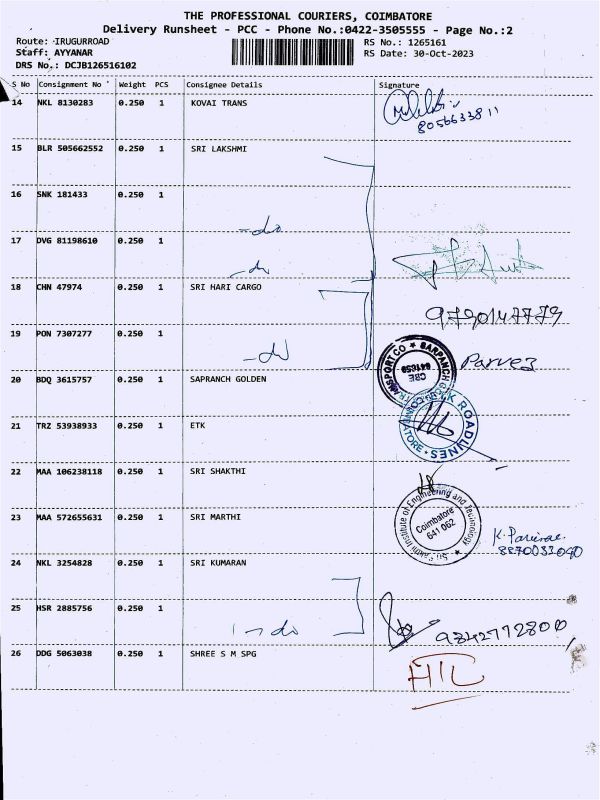 THE PROFESSIONAL COURIERS, COIMBATORE
Delivery Runsheet - PCC - Phone No.:0422-3505555 - Page No.:2
Route: IRUGURROAD RS No.: 1265161
Staff: AYYANAR RS Date: 30-Oct-2023
DRS No.: DCJB126516102
S No Consignment No Weight PCS Consignee Details Signature
14 NKL 8130283 0.250 1 KOVAI TRANS
8056633811
15 BLR 505662552 0.250 1 SRI LAKSHMI
16 SNK 181433 0.250 1
-do
17 DVG 81198610 0.250 1
-do
18 CHN 47974 0.250 1 SRI HARI CARGO
9790147779
19 PON 7307277 0.250 1
-do
Parvez
20 BDQ 3615757 0.250 1 SAPRANCH GOLDEN
21 TRZ 53938933 0.250 1 ETK
K ROADLINES
22 MAA 106238118 0.250 1 SRI SHAKTHI
Sri Shakthi Institute of Engineering and Technology
Coimbatore
641 062
23 MAA 572655631 0.250 1 SRI MARTHI
24 NKL 3254828 0.250 1 SRI KUMARAN
25 HSR 2885756 0.250 1
do
9342772800
26 DDG 5063038 0.250 1 SHREE S M SPG